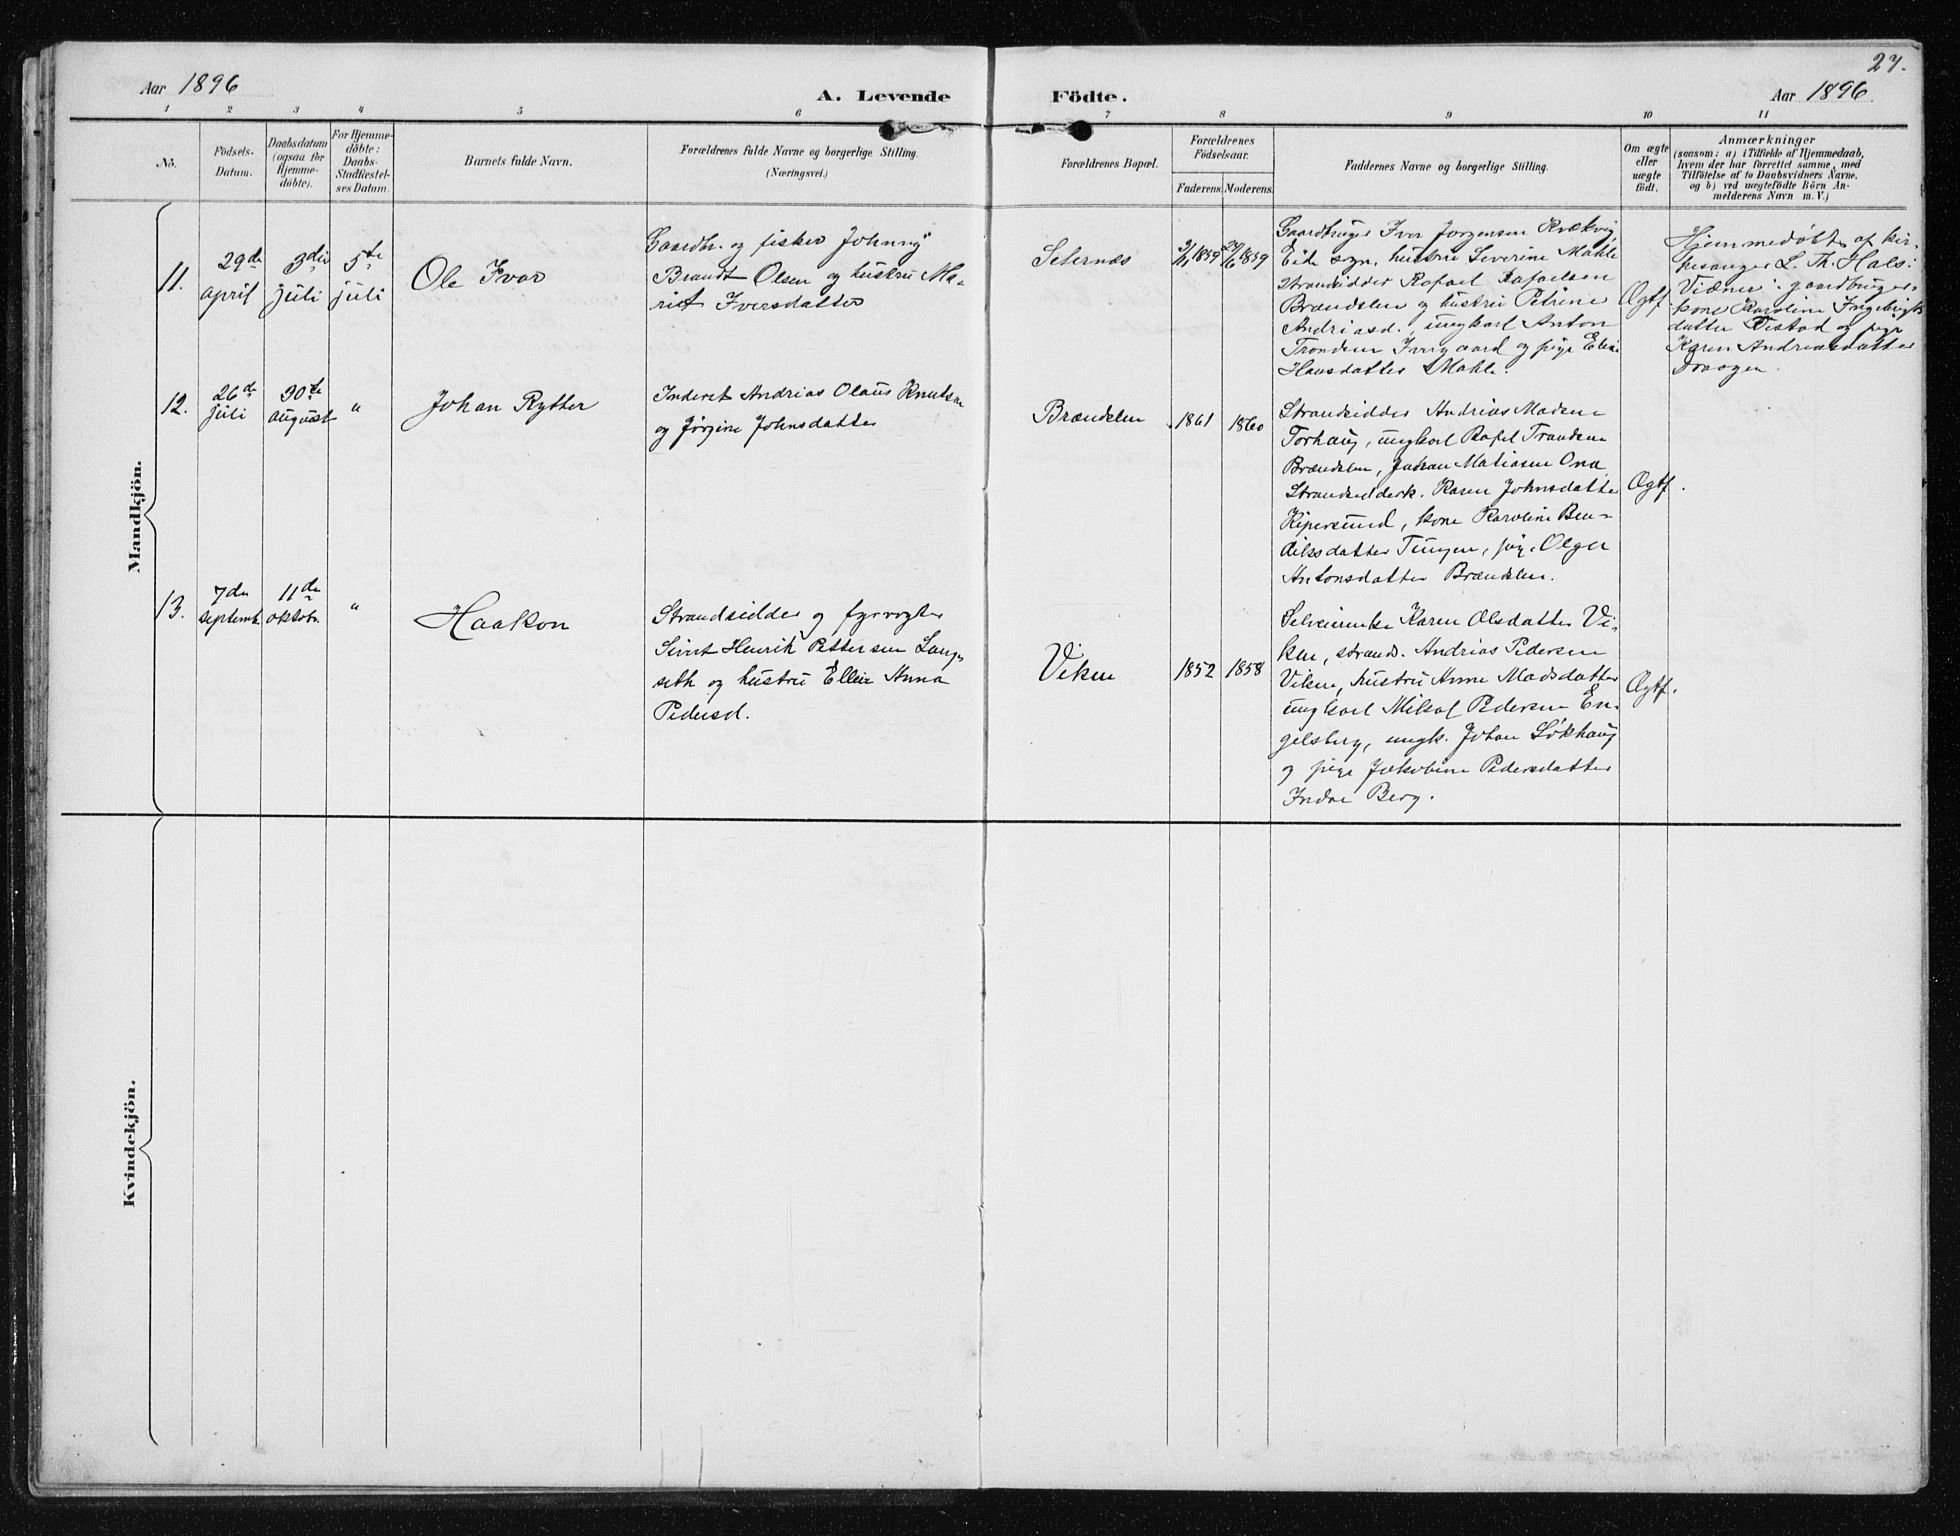 27.
Aar 1896
A. Levende Födte.
Aar 1896.
1 2 3 4 5 6 7 8 9 10 11
No.
Födsels-
Datum.
Daabsdatum
(ogsaa for
Hjemme-
döbte).
For Hjemme-
döbte:
Daabs-
Stadfæstel-
ses Datum.
Barnets fulde Navn.
Forældrenes fulde Navne og borgerlige Stilling.
(Næringsvei.)
Forældrenes Bopæl.
Forældrenes
Födselsaar.
Faderens.
Moderens.
Faddernes Navne og borgerlige Stilling.
Om ægte
eller
uægte
födt.
Anmærkninger
(saasom: a) i Tilfælde af Hjemmedaab,
hvem der har forrettet samme, med
Tilföielse af to Daabsvidners Navne,
og b) ved uægtefödte Börn An-
melderens Navn m. V.)
Mandkjön.
11.
29de
april
3die
juli
5te
juli
Ole Ivar
Gaardbr. og fisker Johnny
Brandt Olsen og hustru Ma-
rit Iversdatter
Seternæs
1859
1859
Gaardbruger Iver Jørgensen Kvækvig
Eide sogn, hustru Severine Mahle
strandsidder Rafael Rafaelsen
Brændslen og hustru Petrine
Andriasd., ungkarl Anton
Trondsen Ivergaard og pige Elise
Hansdatter Mahle.
Ogtf.
Hjemmedøbt af kir-
kesanger L. Th. Hals:
Vidner: gaardbruger-
kone Karoline Ingebrigts-
datter Tistad og pige
Karen Andriasdatter
Draagen.
12.
26de
juli
30te
august
"
Johan Rytter
Inderst Andrias Olaus Knutsen
og Jørgine Johnsdatter
Brændslen
1861
1860
Strandsidder Andrias Madsen
Torhaug, ungkarl Rafel Trondsen
Brændslen, Johan Matiasen Ona,
Strandsidderk. Karen Johnsdatter
Kipersund, kone Karoline Ben-
diksdatter Tungen, pig. Olga
Antonsdatter Brændslen.
Ogtf.
13.
7de
septemb.
11de
oktobr.
"
Haakon
Strandsidder og fyrvogter
Sivert Henrik Pettersen Lang-
seth og hustru Ellen Anna
Pedersd.
Viken
1852
1858
Selveierenke Karen Olsdatter Vi-
ken, strands. Andrias Pedersen
Viken, hustru Anne Madsdatter
ungkarl Mikal Pedersen En-
gelsberg, ungk. Johan Løkhaug
og pige Jakobine Pedersdatter
Indre Berg.
Ogtf.
Kvindekjön.